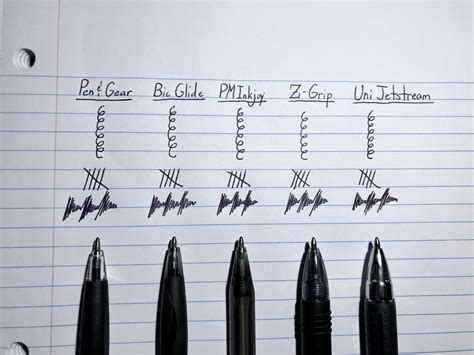 Pen & Gear Bic Glide PM Inkjoy Z-Grip Uni Jetstream